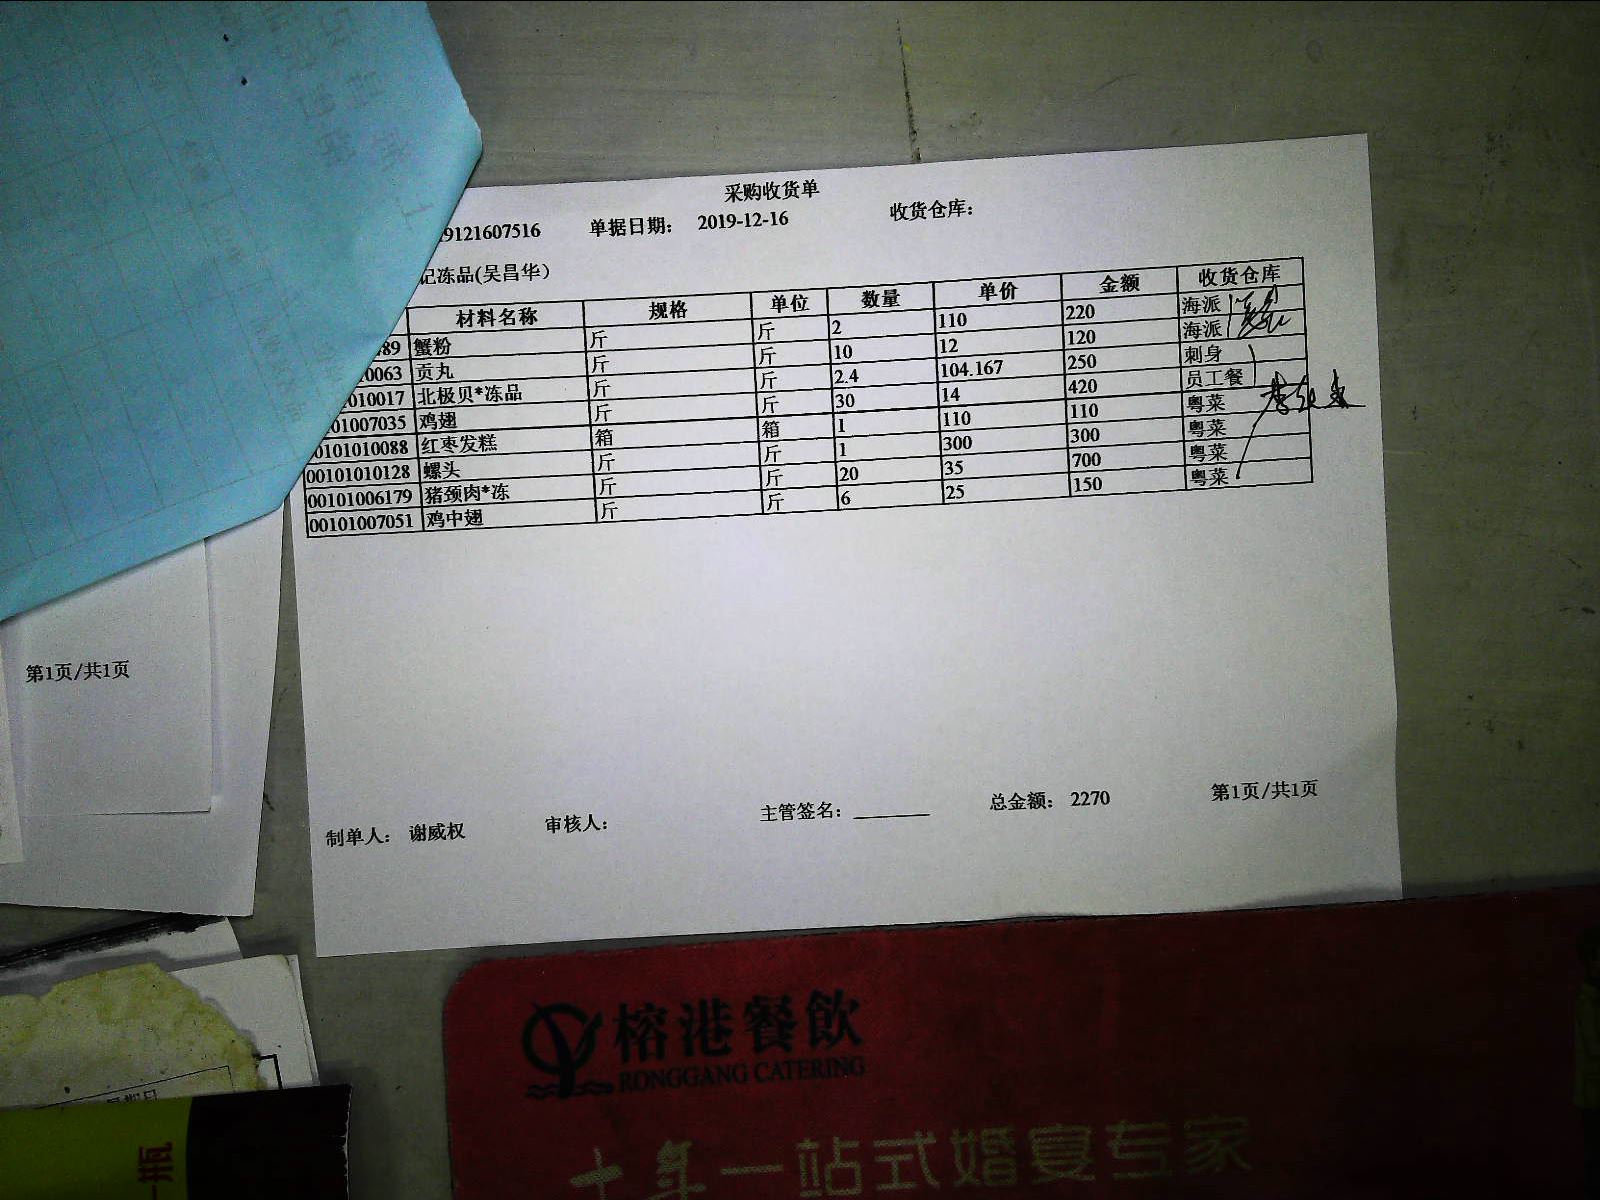 采购收货单
9121607516 单据日期： 2019-12-16 收货仓库：
记冻品(吴昌华）
材料名称 规格 单位 数量 单价 金额 收货仓库
89 蟹粉 斤 斤 2 110 220 海派
0063 贡丸 斤 斤 10 12 120 海派
010017 北极贝*冻品 斤 斤 2.4 104.167 250 刺身
01007035 鸡翅 斤 斤 30 14 420 员工餐
0101010088 红枣发糕 箱 箱 1 110 110 粤菜
00101010128 螺头 斤 斤 1 300 300 粤菜
00101006179 猪颈肉*冻 斤 斤 20 35 700 粤菜
00101007051 鸡中翅 斤 斤 6 25 150 粤菜
第1页/共1页
制单人： 谢威权 审核人： 主管签名： 总金额： 2270 第1页/共1页
榕港餐飲
RONGGANG CATERING
十年一站式婚宴专家
一瓶